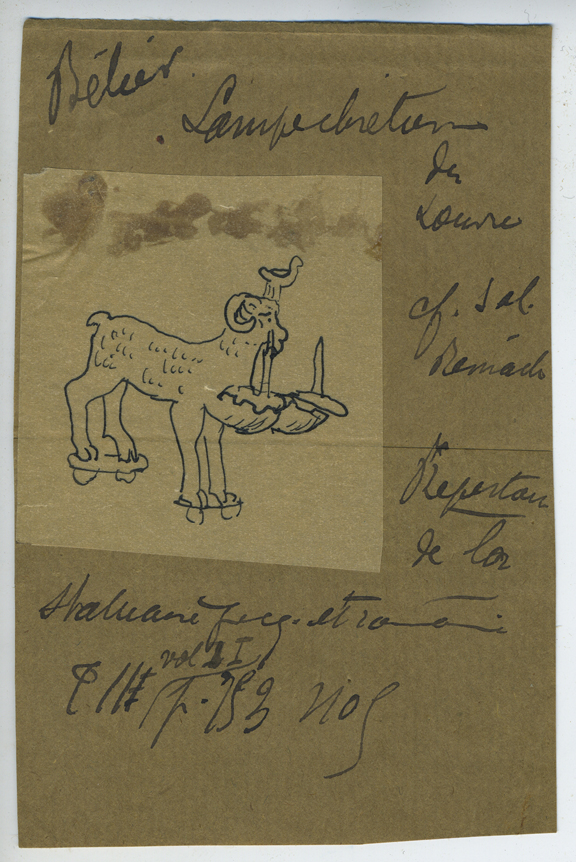 Bélier
Lampe chrétienne
du
Louvre
cf. Sal.
Reinach
Repertoire
de la
statuaire grecq. et romaine
vol II
T II p. 753 No 5